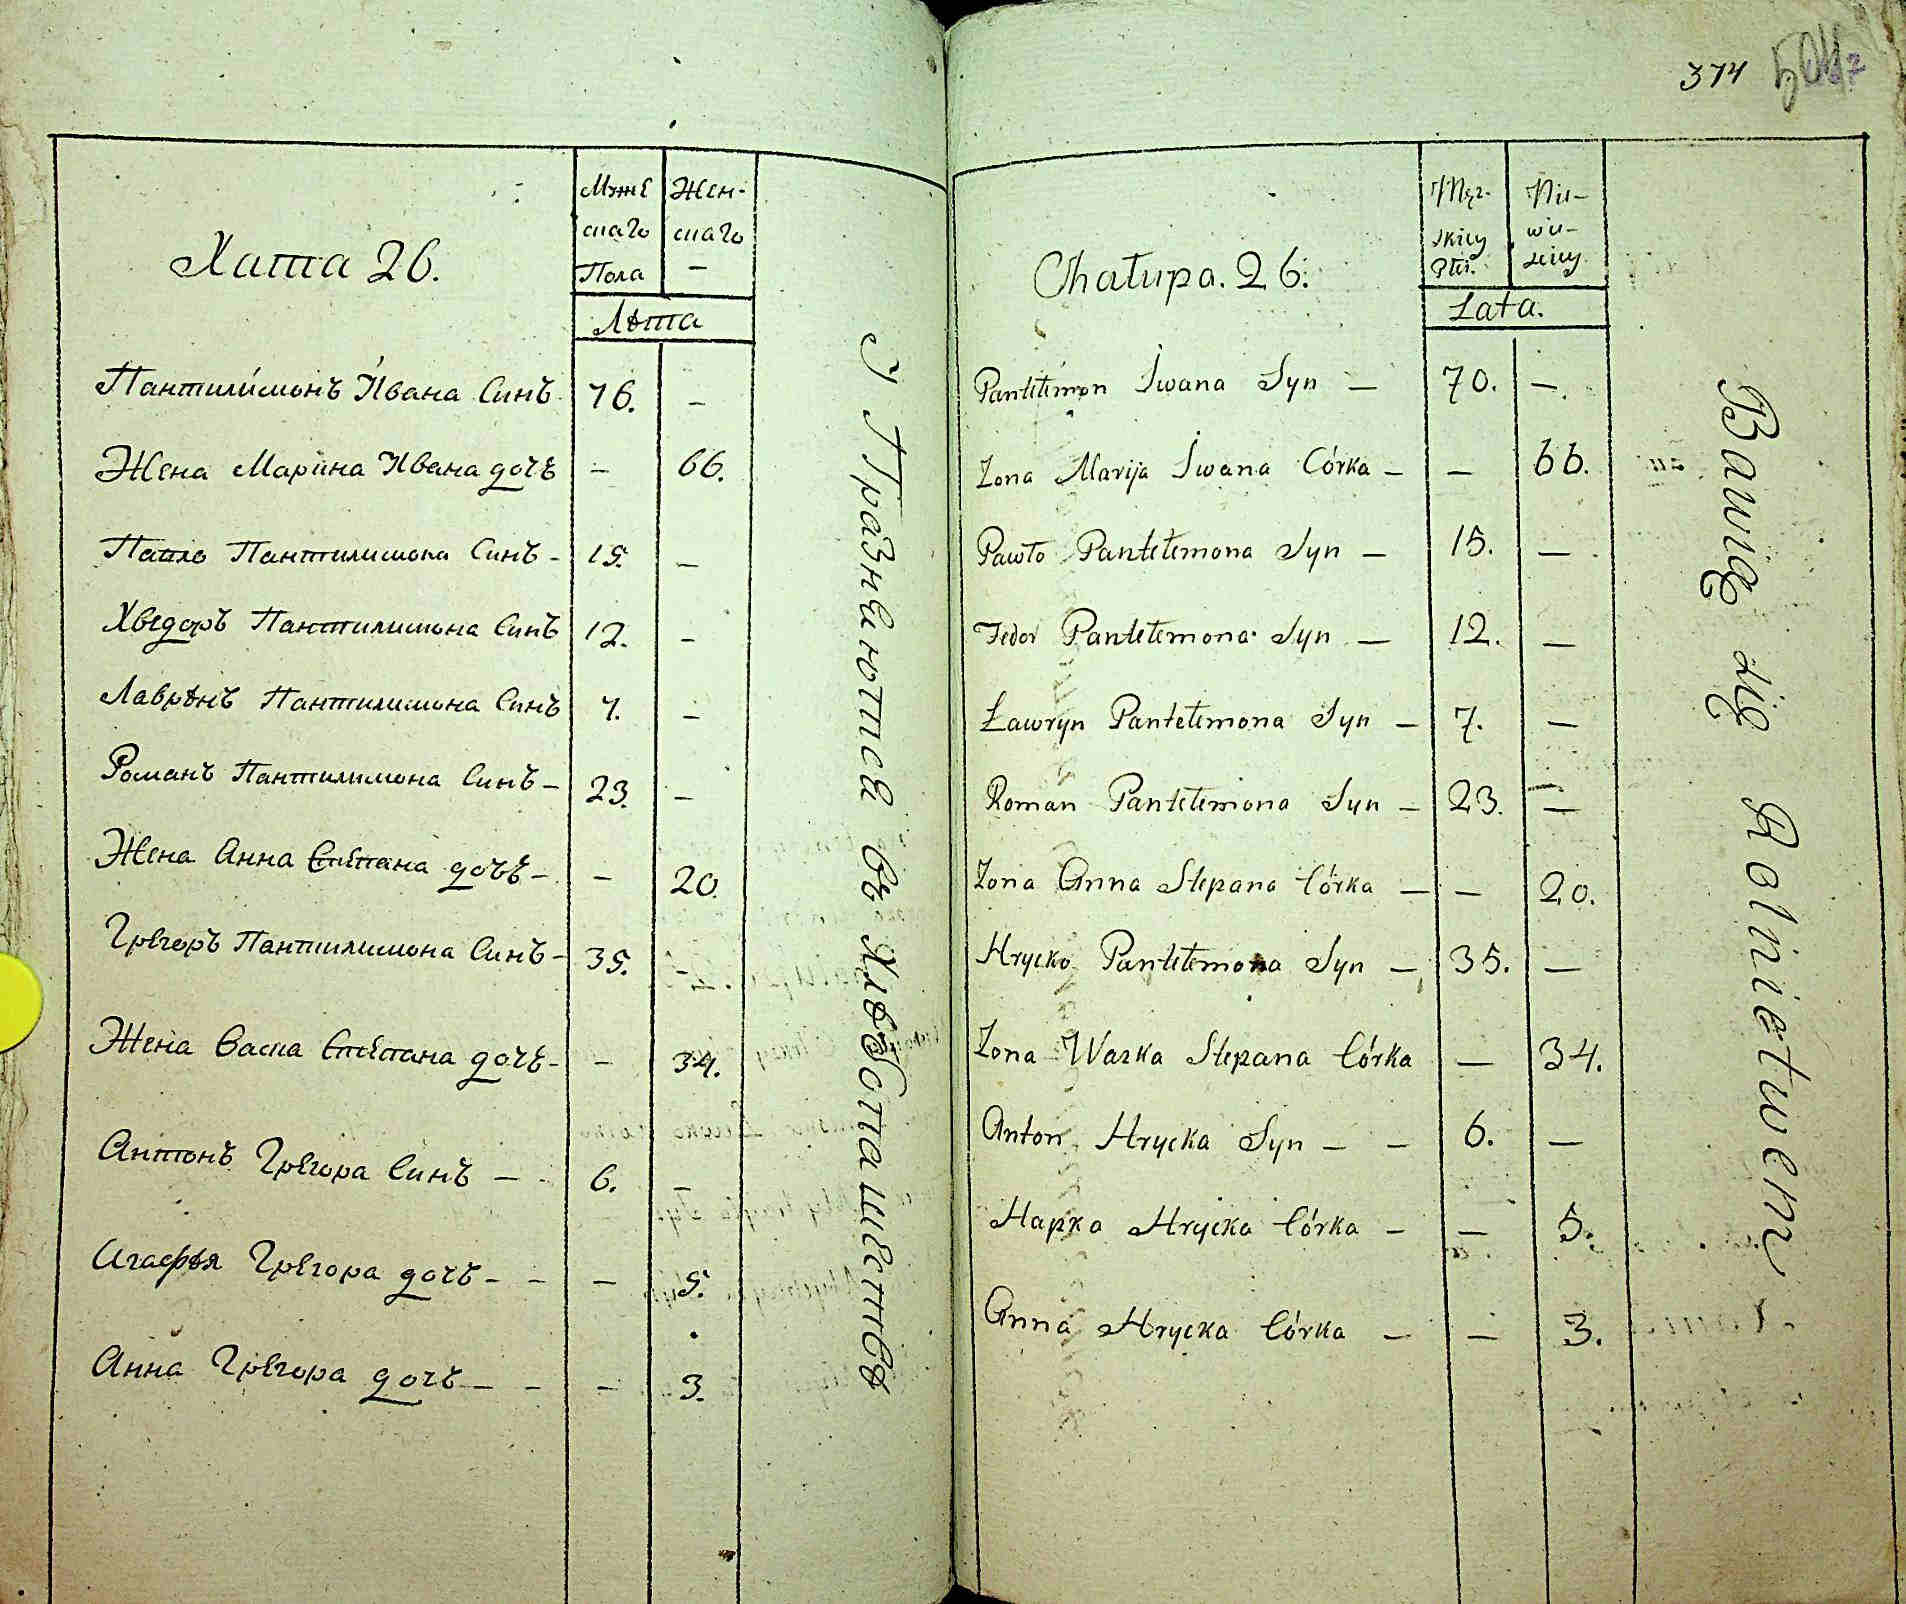 374
Хата 26.
Мꙋже
скаго
Пола
Жен-
скаго
—
Лѣта
Пантилимонъ Ивана Синъ 76. —
Жена Марина Ивана дочъ — 66.
Павло Пантилимона Синъ — 15. —
Хведоръ Пантилимона Синъ 12. —
Лаврѣнъ Пантилимона Синъ 7. —
Романъ Пантилимона Синъ — 23. —
Жена Анна Степана дочъ — — 20.
Грегоръ Пантилимона Синъ — 35. —
Жена Васка Степана дочъ — — 34.
Антонъ Грегора Синъ — — 6. —
Агафѣя Грегора дочъ — — — 5.
Анна Грегора дочъ — — — 3.
У Празнаютса въ Хлѣбопашествѣ
Chałupa. 26.
Męz-
skiey
Płci.
Nie-
wie-
sciey
Lata.
Pantełemon Iwana Syn — 70. —.
Zona Marija Iwana Córka — — 66.
Pawło Pantełemona Syn — 15. —
Fedor Pantełemona Syn — 12. —
Ławryn Pantełemona Syn — 7. —
Roman Pantełemona Syn — 23. —
Zona Anna Stepana Córka — — 20.
Hrycko Pantełemona Syn — 35. —
Zona Waska Stepana Córka — 34.
Anton Hrycka Syn — — 6. —
Hapka Hrycka Córka — — 5.
Anna Hrycka Córka — — 3.
Bawią się Rolnictwem